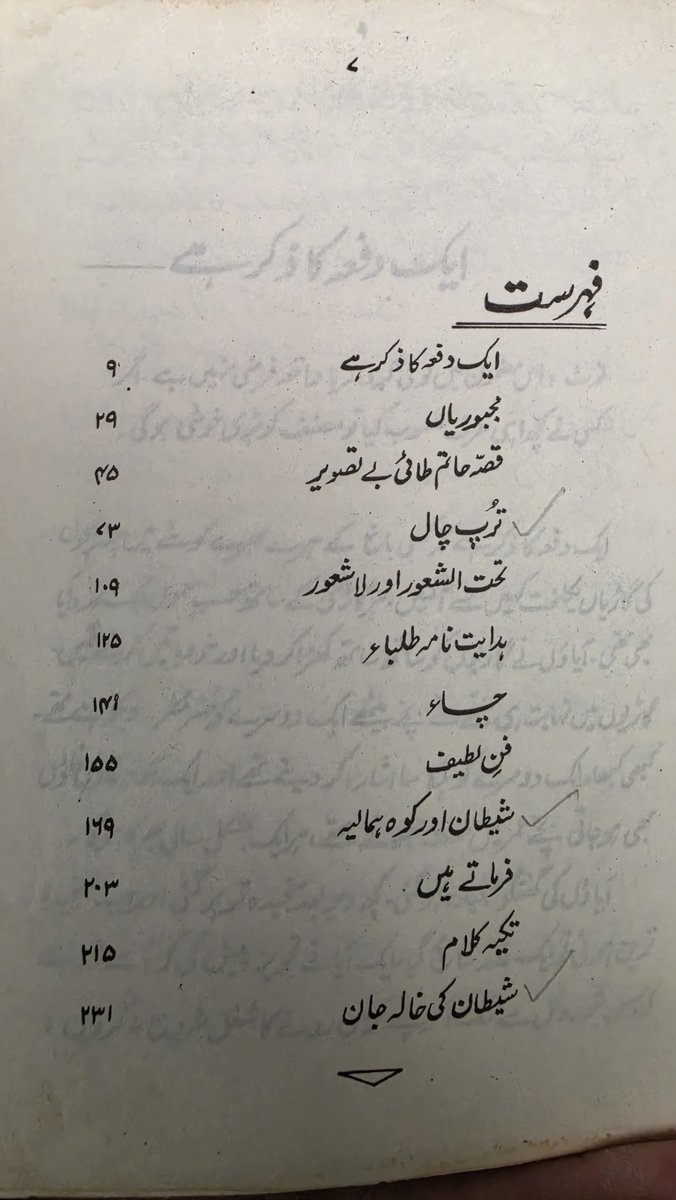 ۷
فہرست
ایک دفعہ کا ذکر ہے ۹
مجبوریاں ۲۹
قصّہ حاتم طائی بے تصویر ۴۵
تُرپ چال ۷۳
تحت الشعور اور لاشعور ۱۰۹
ہدایت نامہ طلباء ۱۲۵
چاء
فنِ لطیف ۱۵۵
شیطان اور کوہ ہمالیہ ۱۶۹
فرماتے ہیں ۲۰۳
تکیہ کلام ۲۱۵
شیطان کی خالہ جان ۲۳۱